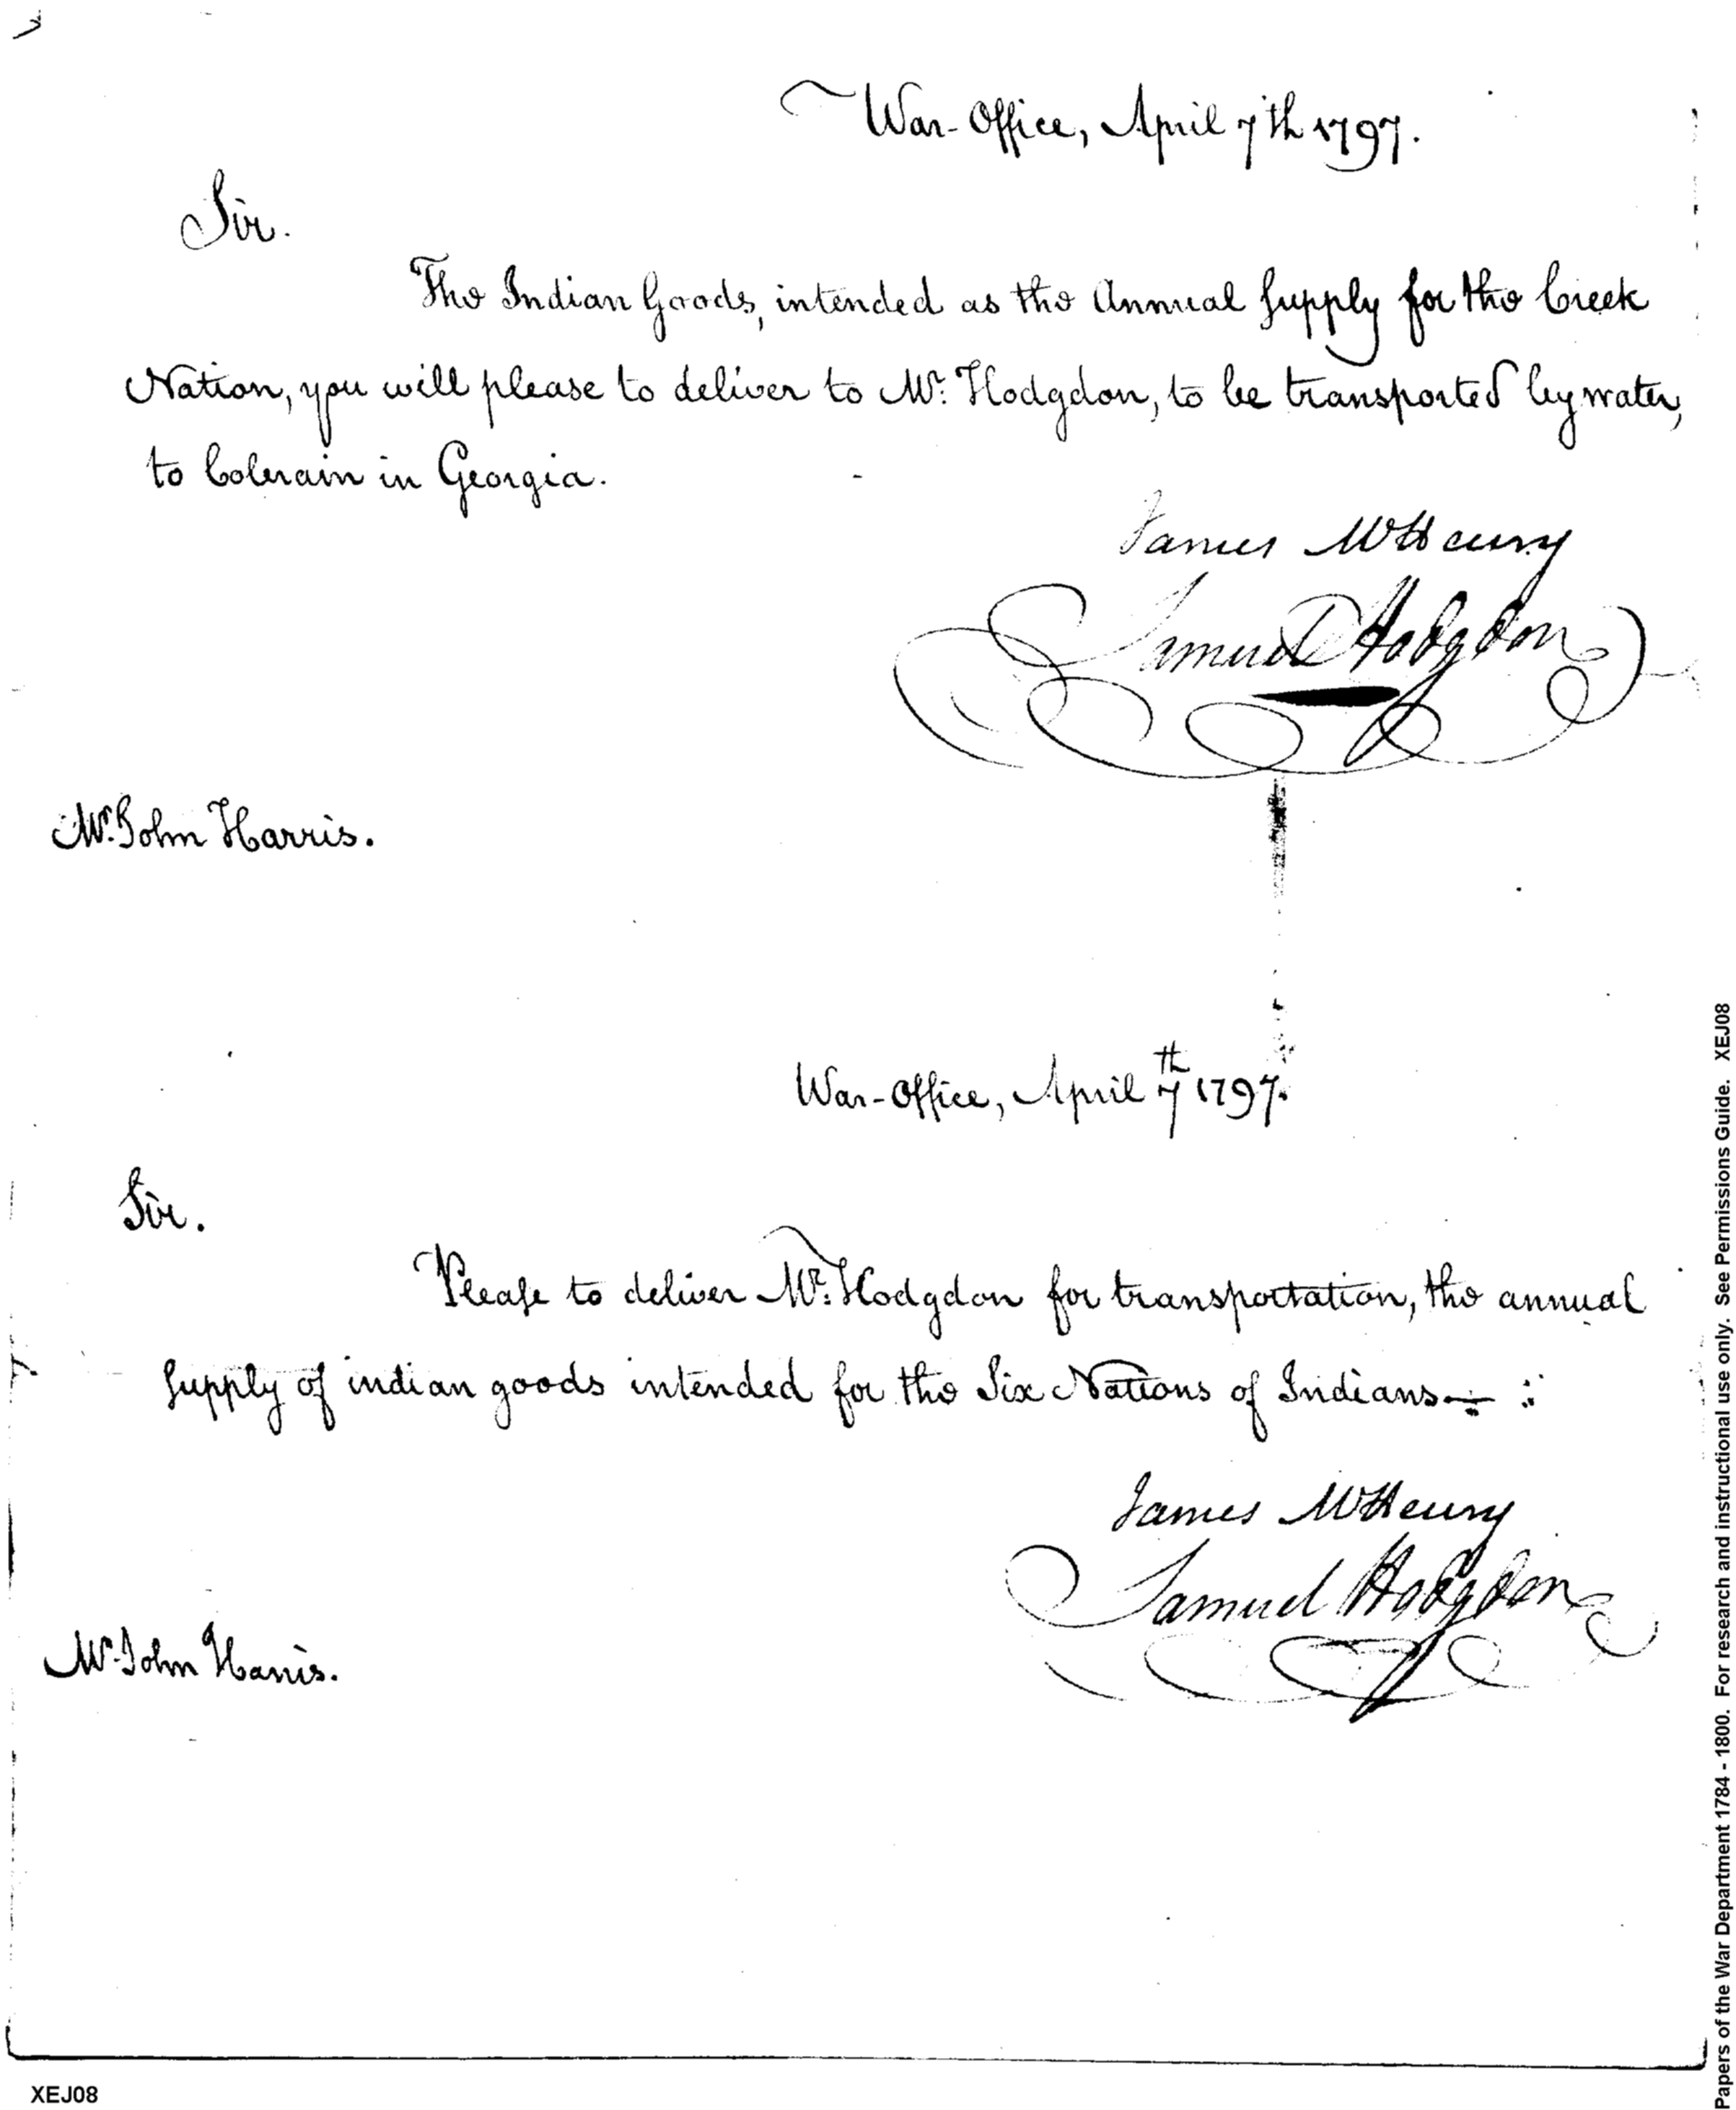 War-Office, April 7th 1797.
Sir.
The Indian Goods, intended as the Annual Supply for the Creek
Nation, you will please to deliver to Mr. Hodgdon, to be transported by water,
to Colerain in Georgia.
James McHenry
Samuel Hodgdon
Mr. John Harris.
War-Office, April 7th 1797.
Sir.
Please to deliver Mr. Hodgdon for transportation, the annual
Supply of indian goods intended for the Six Nations of Indians
James McHenry
Samuel Hodgdon
Mr. John Harris.
XEJ08
Papers of the War Department 1784 - 1800. For research and instructional use only. See Permissions Guide. XEJ08